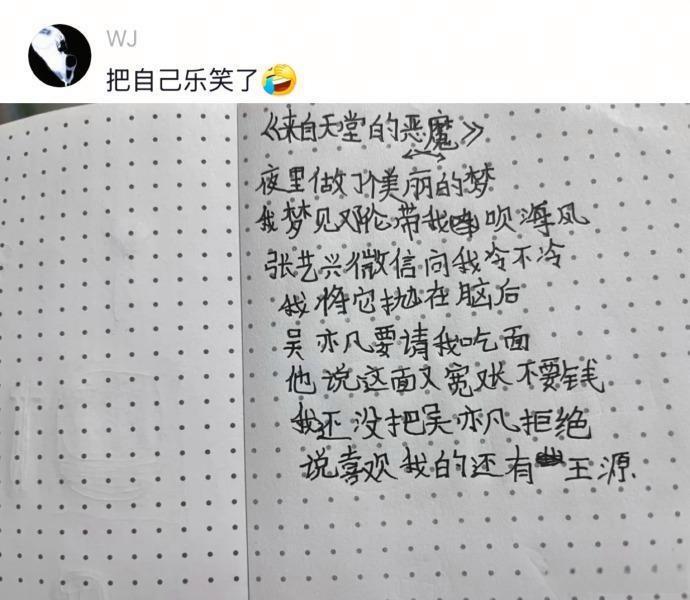 WJ
把自己乐笑了🤣
《来自天堂的恶魔》
夜里做了个美丽的梦
我梦见邓伦带我吹海风
张艺兴微信问我冷不冷
我将它抛在脑后
吴亦凡要请我吃面
他说这面又宽又长不要钱
我还没把吴亦凡拒绝
说喜欢我的还有王源